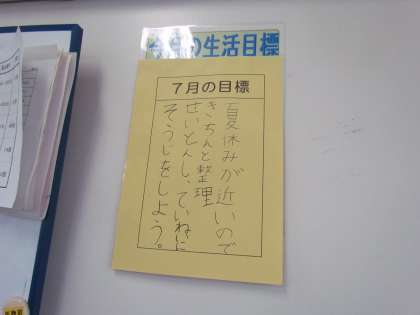 今月の生活目標
7月の目標
夏休みが近いので
きちんと整理
せいとんし、ていねいに
そうじをしよう。